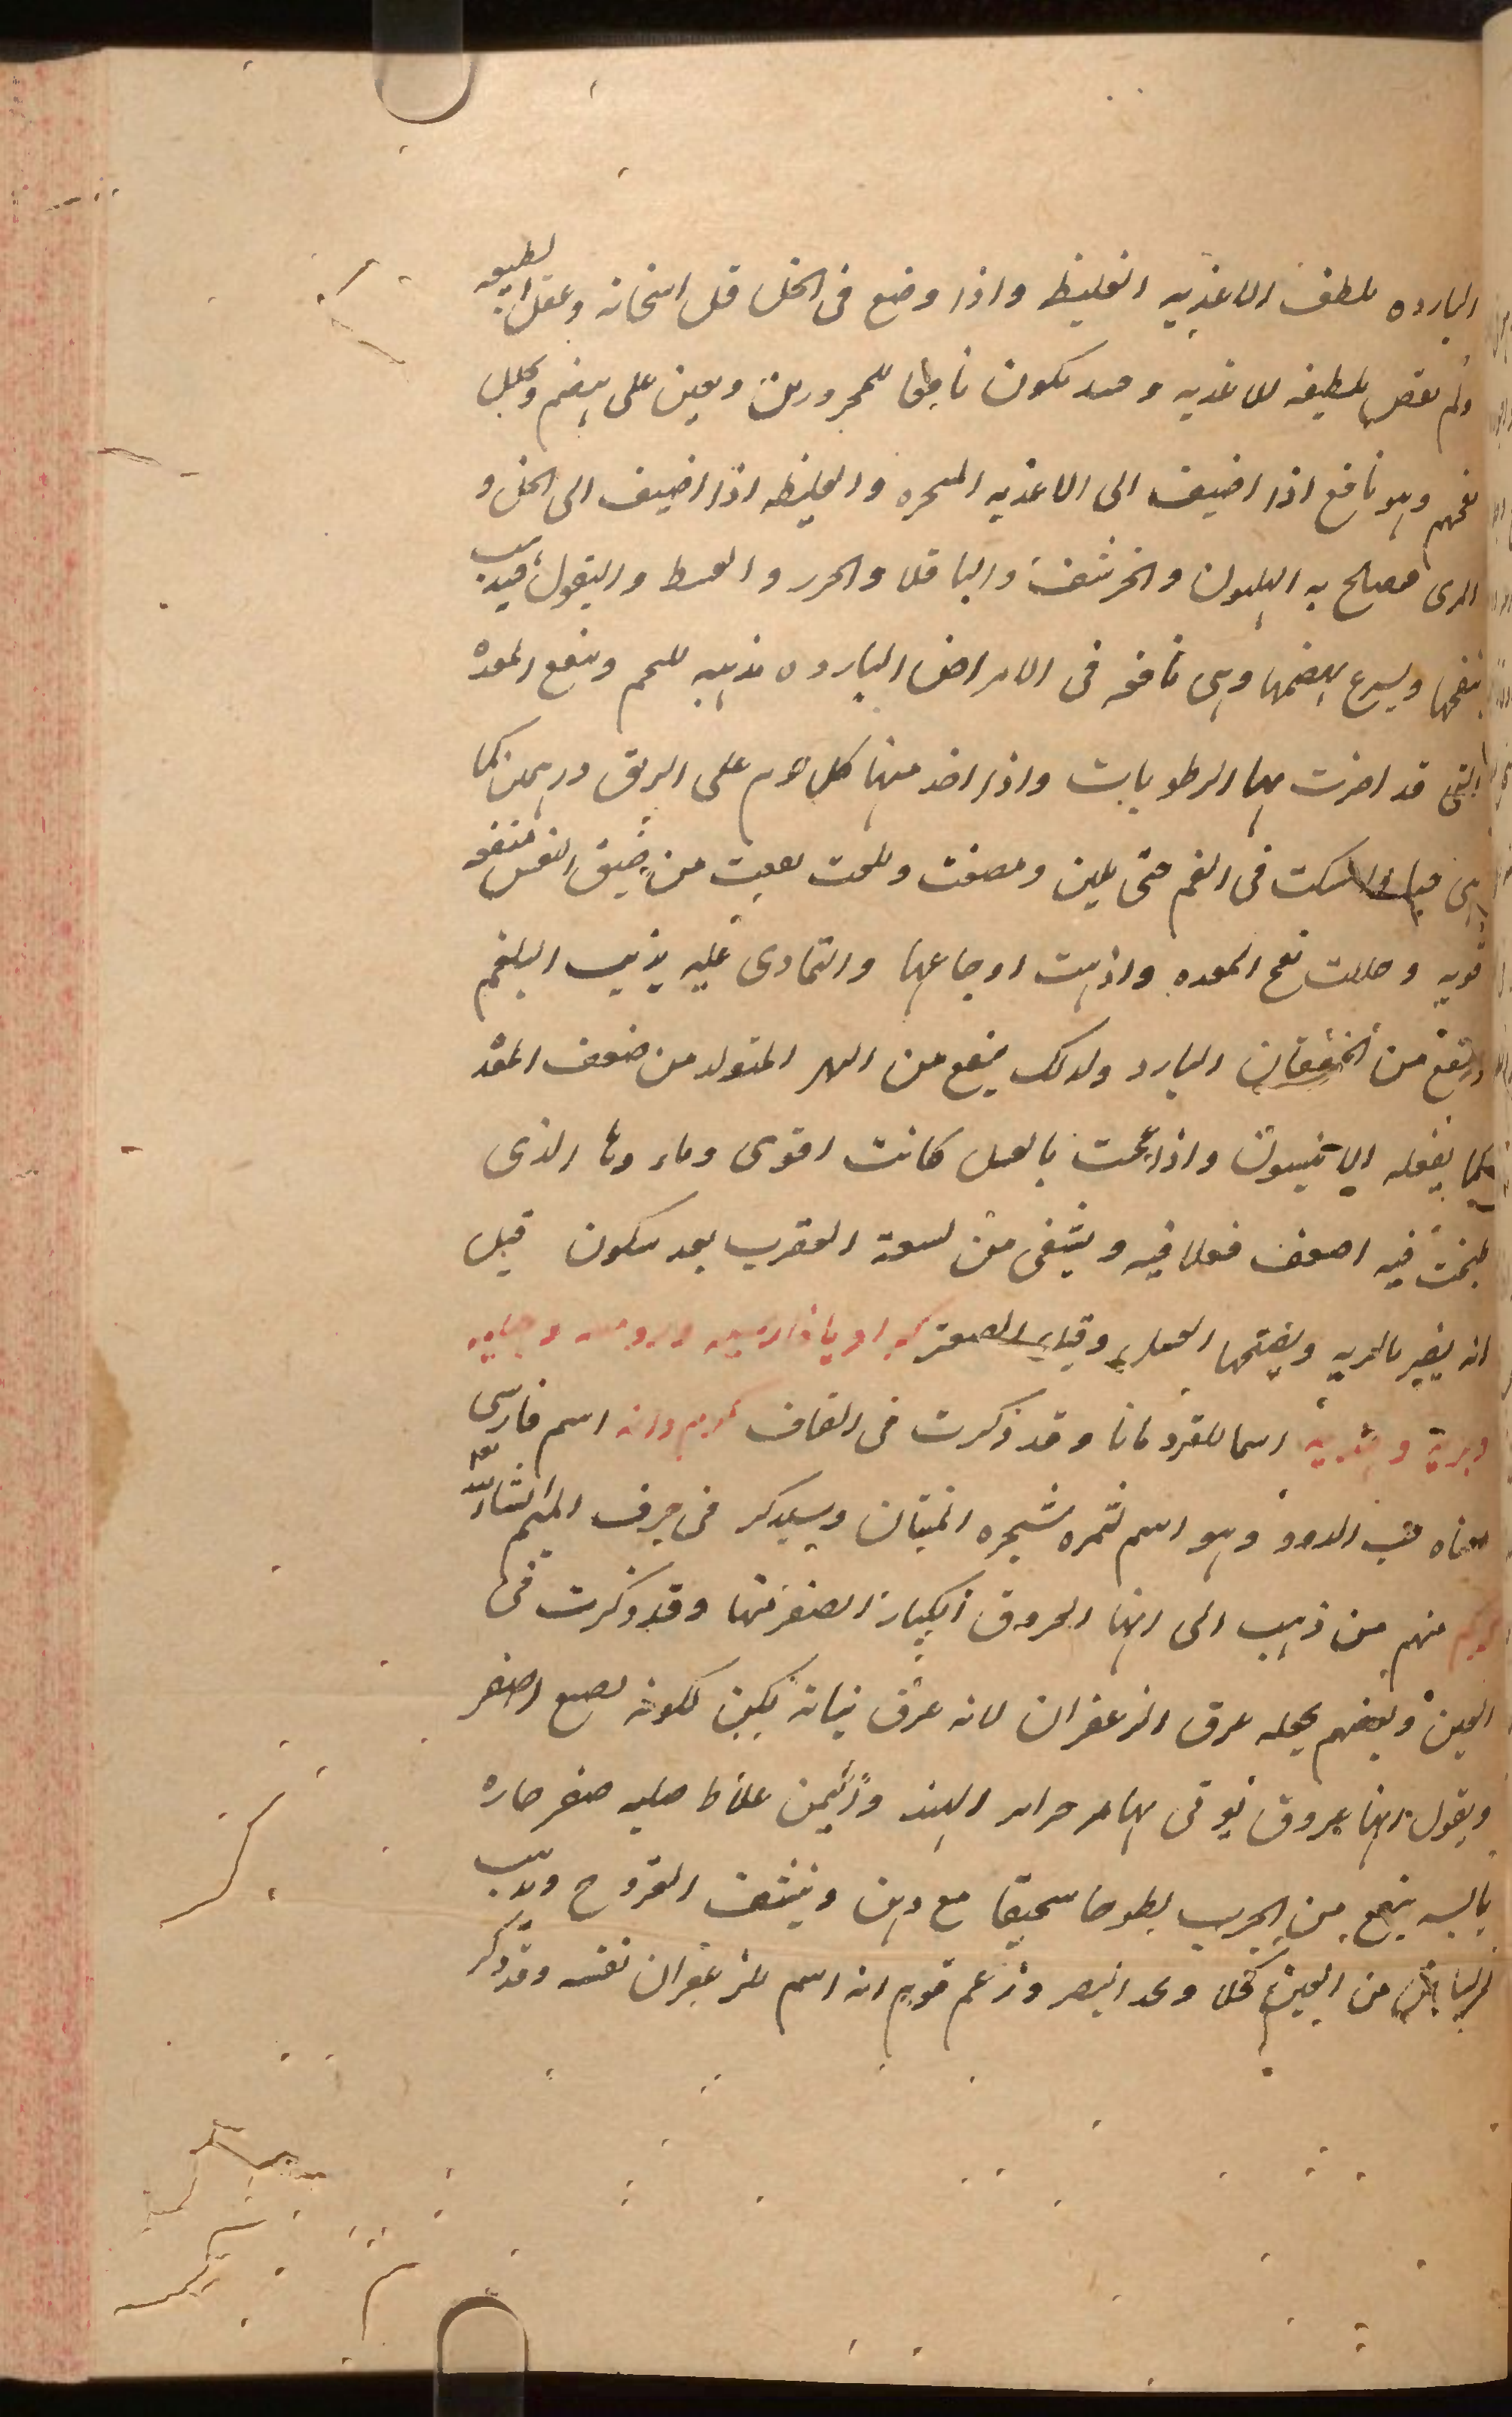 البارده ملطف الاغذيه الغليظ واذا وضع فى الخل قل اسخانه وعقل الطبيعه
ولم نقص لطيفه للاغذيه وحسد يكون نافعا للمحرورين ويعين على هضم ويحلل
نفخهم وهو نافع اذا اضيف الى الاغذيه المبخره والغليظه اذا اضيف الى الخل و
المرى فصلح به الهليون والخرشف والباقلا والجزر والقسط والبقول فيذهب
نفخها ويسرع بهضمها وهى نافعه فى الامراض البارده مذهبه للحم وينفع المعدة
التى قد اضرت بها الرطوبات واذا اخذ منها كل يوم على الريق درهمين كما
هى امسكت فى الفم حتى تلين ومضغت وبلعت نفعت من ضيق النفس منفعه
قويه وحللت نفخ المعده واذهبت اوجاعها والتمادى عليه يذيب البلغم
وينفع من الخفقان البارد ولذلك ينفع من البهر المتولد من ضعف المعده
كما يفعله الانيسون واذا عجنت بالعسل كانت اقوى وماءوها الذى
طبخت فيه اضعف فعلا فيه ويشفى من لسعة العقرب بعد سكون قيل
انه يضر بالريه ويصلحها العسل وقيل الصعتر كراويا فارسيه وروميه وجبليه
وبرية اسما للقردمانا وقد ذكرت فى القاف كرم دانه اسم فارسى
معناه حب الدود وهو اسم لثمره شجره المثنان وسيذكر فى حرف الميم ان شاء الله
كركم منهم من ذهب الى انها العروق الكبار الصفر منها وقد ذكرت فى
العين وبعضهم يجعله عرق الزعفران لانه عرق نباته يكون لكونه يصبغ اصفر
ويقول انها عروق يوتى بها من جزاير الهند واليمن غلاظ صلبه صفر حاره
يابسه ينفع من الجرب لطوخا سحيقا مع دهن وينشف القروح ويذهب
البياض من العين كحلا ويحد البصر وزعم قوم انه اسم للزعفران نفسه وقد ذكر